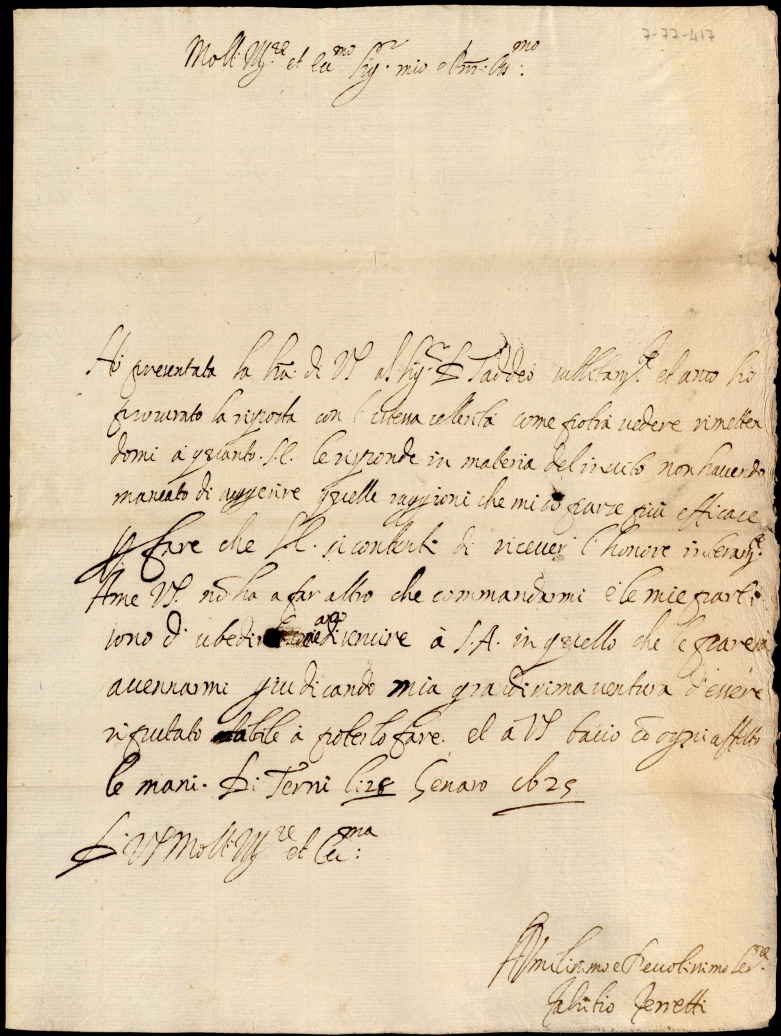 7-77-417
Molt' Ill.re et Ecc.mo Sig.r mio e Pron. Oss.mo:
Hò presentata la lra. di VS al Sig.r D Taddeo et anco ho
procurato la risposta con l'istessa cellerità come potrà vedere rimetten
domi a quanto. S.E. le risponde in materia del invito non havendo
mancato di suggerire quelle raggioni che mi só parse più efficace
p fare che S.E. si contenti di ricever l'honore
A me VS. nõ ha a far altro che commandarmi e le mie parti
sono d' ubedir di servire à S.A. in quello che le parerà
accennarmi giudicando mia grandissima ventura d'essere
riputato abile à poterlo fare. et a VS bacio cõ ogni affetto
le mani. Di Terni li 28 Genaro 1625
Di VS Molt' Ill.re et Ecc.ma:
Humilissimo e Devotissimo Ser.re
Fabritio Ferretti